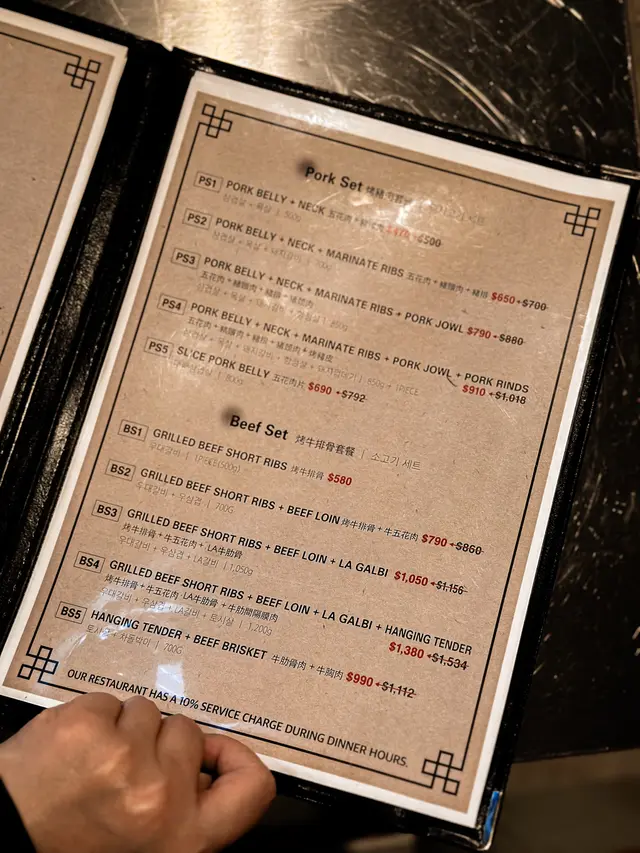 Pork Set 烤豬肉套餐
PS1 PORK BELLY + NECK 五花肉 + $500
삼겹살 + 목살 | 500g
PS2 PORK BELLY + NECK + MARINATE RIBS 五花肉 + 豬頸肉 + 豬排 $650 $700
삼겹살 + 목살 + 돼지갈비
PS3 PORK BELLY + NECK + MARINATE RIBS + PORK JOWL $790 $880
五花肉 + 豬頸肉 + 豬排
삼겹살 + 목살 + 돼지갈비 + | 850g
PS4 PORK BELLY + NECK + MARINATE RIBS + PORK JOWL + PORK RINDS
五花肉 + 豬頸肉 + 豬排 + + 烤豬皮 $910 $1,018
삼겹살 + 목살 + 돼지갈비 + 항정살 + 돼지껍데기 | 850g + 1PIECE
PS5 SLICE PORK BELLY 五花肉片 $690 $792
| 800g
Beef Set 烤牛排骨套餐 | 소고기 세트
BS1 GRILLED BEEF SHORT RIBS 烤牛排骨 $580
우대갈비 | 1PIECE(500g)
BS2 GRILLED BEEF SHORT RIBS + BEEF LOIN 烤牛排骨 + 牛五花肉 $790 $860
우대갈비 + 우삼겹 | 700G
BS3 GRILLED BEEF SHORT RIBS + BEEF LOIN + LA GALBI $1,050 $1,156
烤牛排骨 + 牛五花肉 + LA牛肋骨
우대갈비 + 우삼겹 + LA갈비 | 1,050g
BS4 GRILLED BEEF SHORT RIBS + BEEF LOIN + LA GALBI + HANGING TENDER
烤牛排骨 + 牛五花肉 LA牛肋骨 + 牛肋間隔膜肉 $1,380 $1,534
우대갈비 + 우삼겹 + LA갈비 + 토시살 | 1,200g
BS5 HANGING TENDER + BEEF BRISKET 牛肋骨肉 + 牛胸肉 $990 $1,112
토시살 + 차돌박이 | 700G
OUR RESTAURANT HAS A 10% SERVICE CHARGE DURING DINNER HOURS.